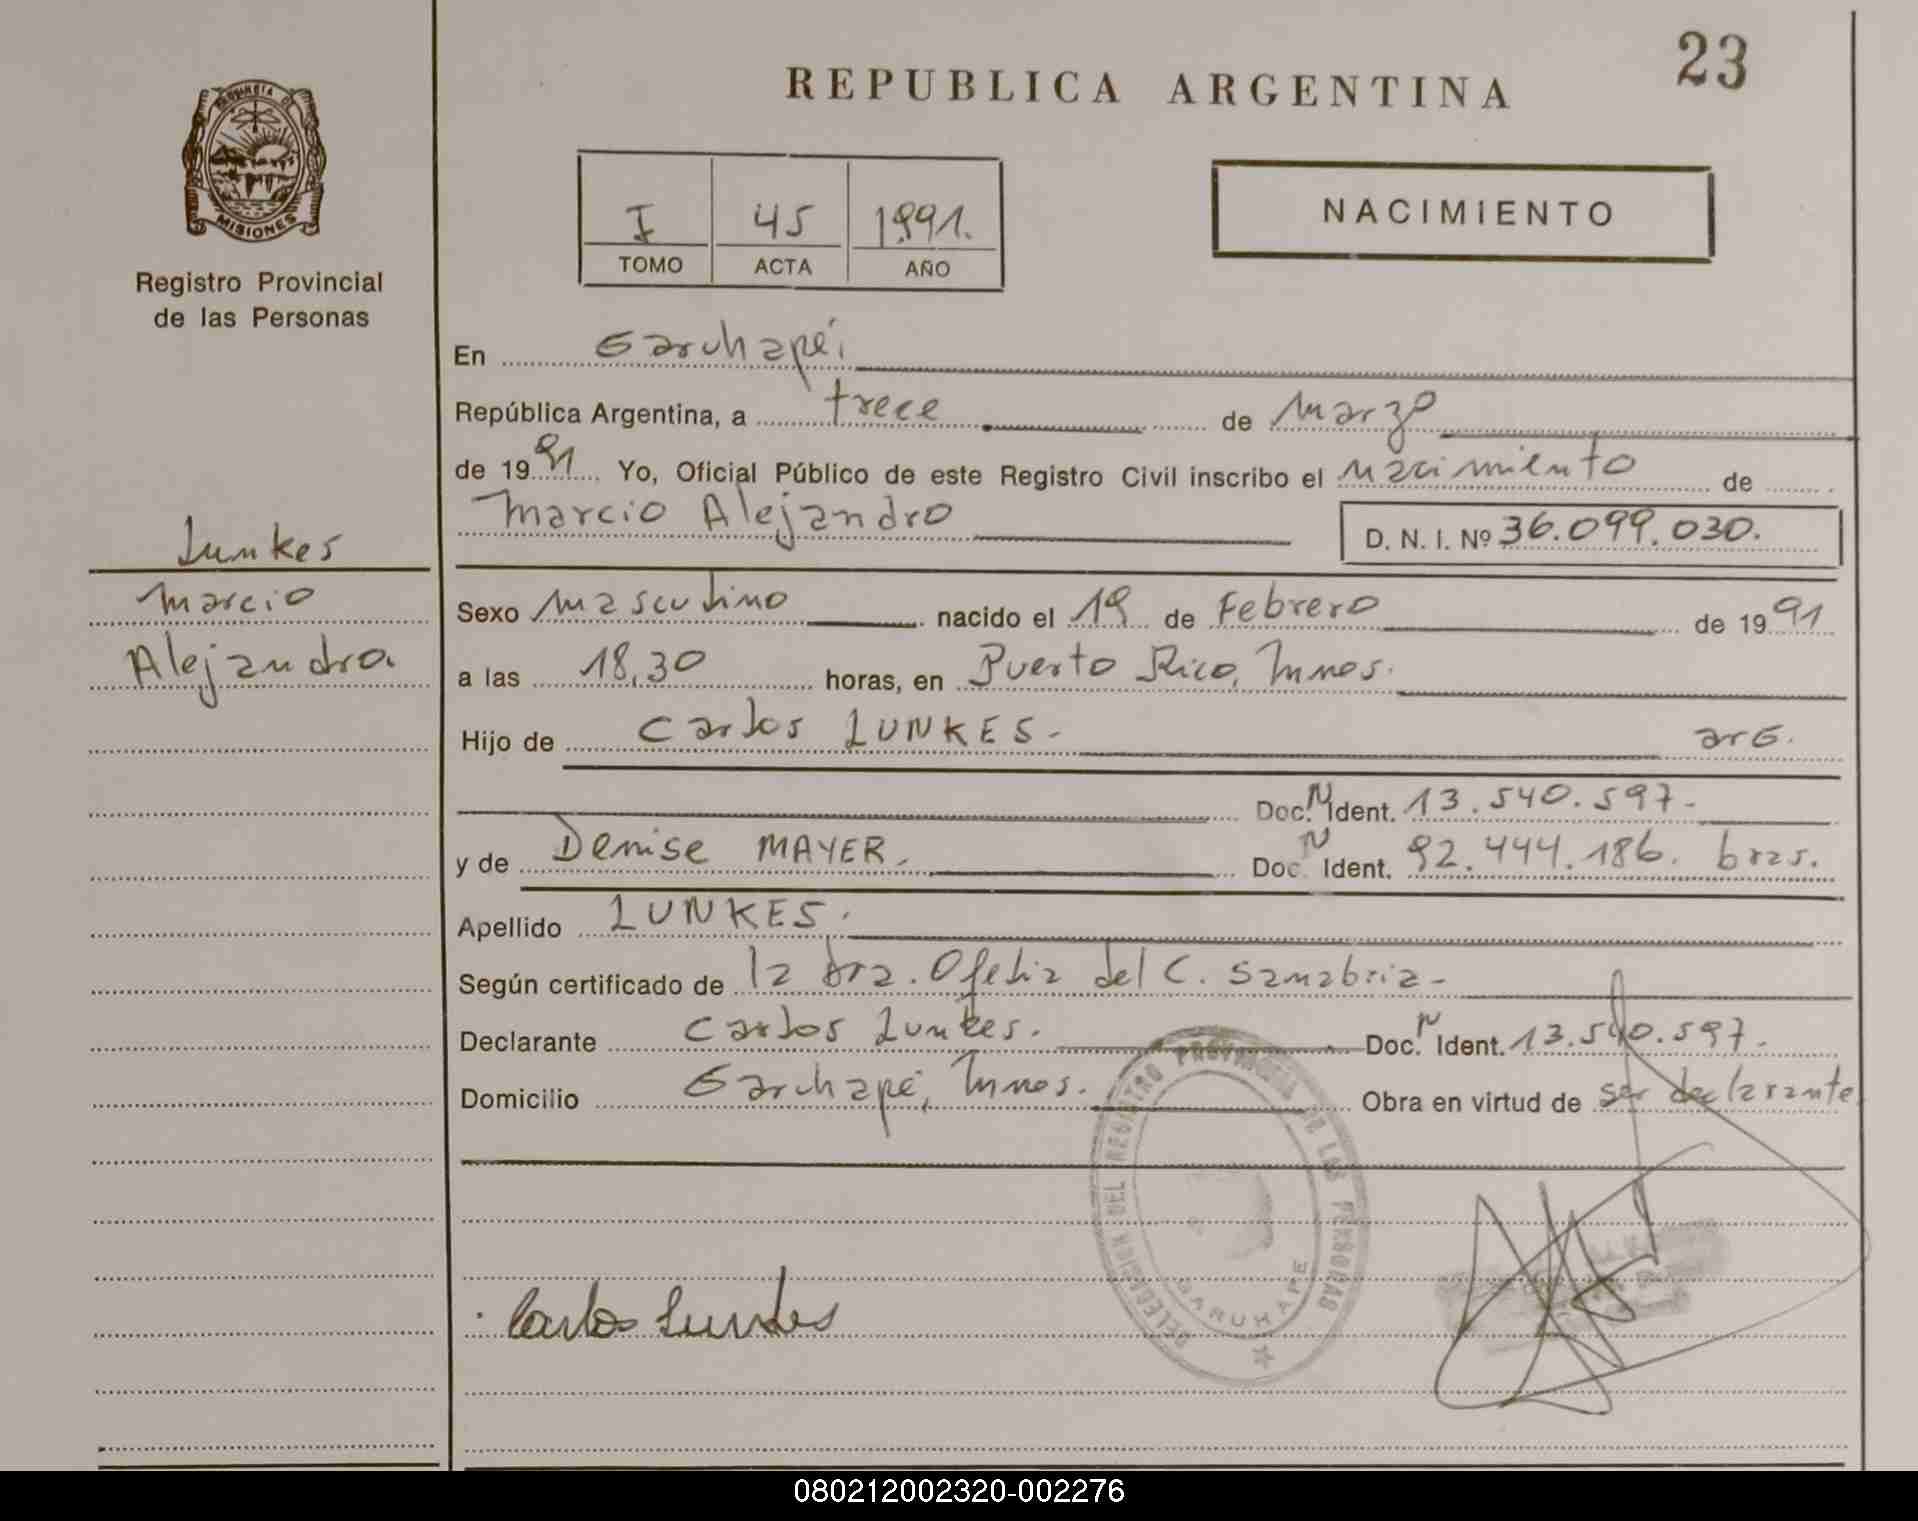 23
REPUBLICA ARGENTINA
PROVINCIA DE
MISIONES
Registro Provincial
de las Personas
I 45 1991.
TOMO ACTA AÑO
NACIMIENTO
En Garuhapé,
República Argentina, a trece de Marzo
de 1991 Yo, Oficial Público de este Registro Civil inscribo el nacimiento de
Marcio Alejandro
D. N. I. Nº 36.099.030.
Lunkes
Marcio
Alejandro.
Sexo Masculino nacido el 19 de Febrero de 1991
a las 18,30 horas, en Puerto Rico, Mnes.
Hijo de Carlos LUNKES- arg.
Doc. N Ident. 13.540.597-
y de Denise MAYER. Doc. N Ident. 92.444.186. bras.
Apellido LUNKES.
Según certificado de la dra. Ofelia del C. Sanabria-
Declarante Carlos Lunkes. Doc. N Ident. 13.540.597.
Domicilio Garuhapé, Mnes. Obra en virtud de ser declarante.
DELEGACION DEL REGISTRO PROVINCIAL DE LAS PERSONAS
GARUHAPE
Carlos Lunkes
080212002320-002276